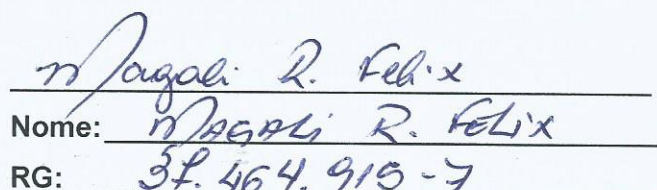 Magali R. Felix
Nome: MAGALi R. FELiX
RG: 37.464.919-7